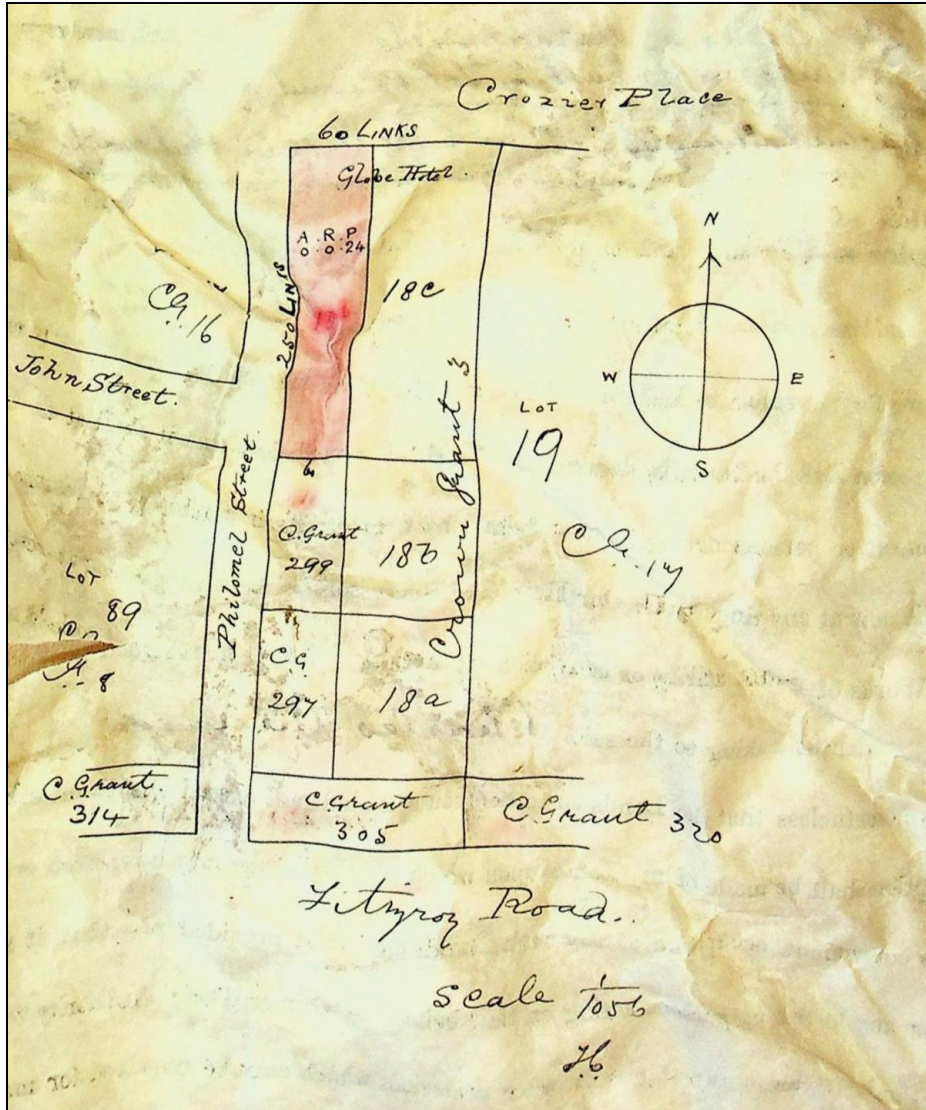 Crozier Place
60 LINKS
Globe Hotel.
A R P
0 0 24
250 LINKS
18c
C.G. 16
John Street.
N
W E
S
LOT
19
Crown Grant 3
C.G. 17
Philomel Street
C.Grant
299
18b
LOT
89
8
C.G.
297
18a
C.Grant.
314
C.Grant
305
C.Grant 320
Fitzroy Road.
Scale 1/1056